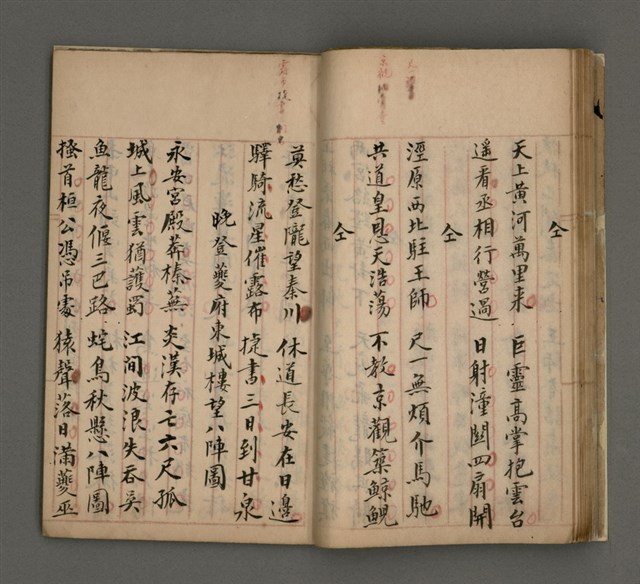 仝
天上黃河萬里来 巨靈髙掌抱雲台
遥看丞相行營過 日射潼関四扇開
仝
涇原西北駐王師 尺一無煩介馬馳
共道皇恩天浩蕩 不教京觀築鯨鯢
莫愁登隴望秦川 休道長安在日邉
驛騎流星催露布 捷書三日到甘泉
晚登夔府東城樓望八陣圖
永安宮殿莽榛蕪 炎漢存亡六尺孤
城上風雲猶護蜀 江間波浪失吞吴
魚龍夜偃三巴路 蛇鳥秋懸八陣圖
搔首桓公憑吊處 猿聲落日滿夔巫